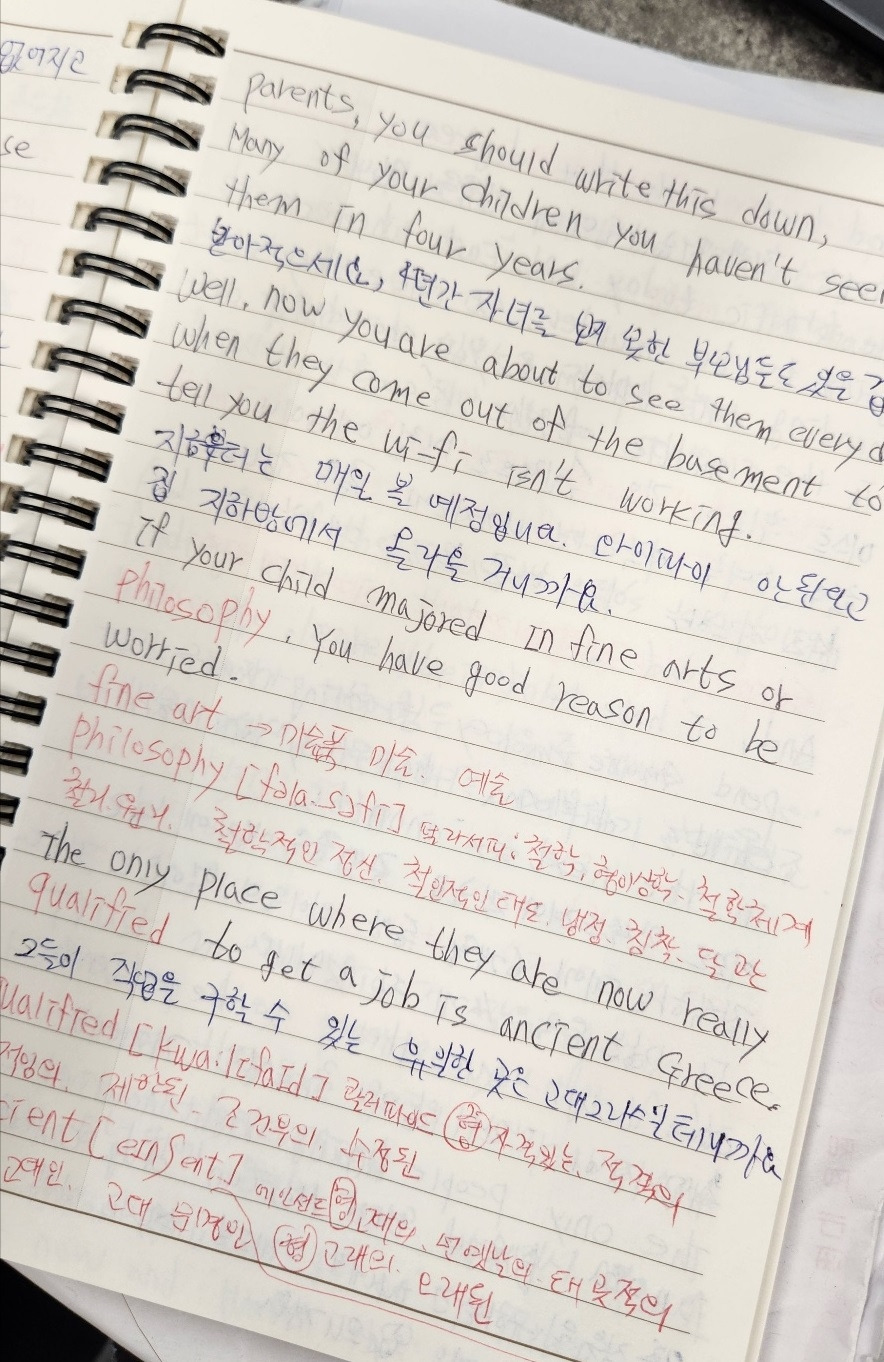 없어지고
se
Parents, you should write this down,
Many of your children you haven't seen
them in four years.
받아적으세요, 4년간 자녀를 보지 못한 부모님들도 있을
Well, now you are about to see them everyd
when they come out of the basement to
tell you the wi-fi isn't working.
지금부터는 매일 볼 예정입니다. 와이파이 안된다고
집 지하방에서 올라올 거니까요.
If your child majored in fine arts or
philosophy, you have good reason to be
worried.
fine art → 미술품 미술. 예술
philosophy [fəla:səfi] 펄라서피: 철학, 형이상학, 철학체계
철리. 원리. 철학적인 정신. 철인적인 태도. 냉정. 침착. 달관
The only place where they are now really
qualified to get a job is ancient Greece.
그들이 직업을 구할 수 있는 유일한 곳은 고대그리스일테니까요
ualified [kwa:lɪfaɪd] 콸러파이드 형 자격있는, 적격의
적임의. 제한된. 조건부의. 수정된
cient [eɪnʃənt] 에인션트 형, 고대의. 먼옛날의. 태곳적의
고대인. 고대 문명인 형 고래의. 오래된